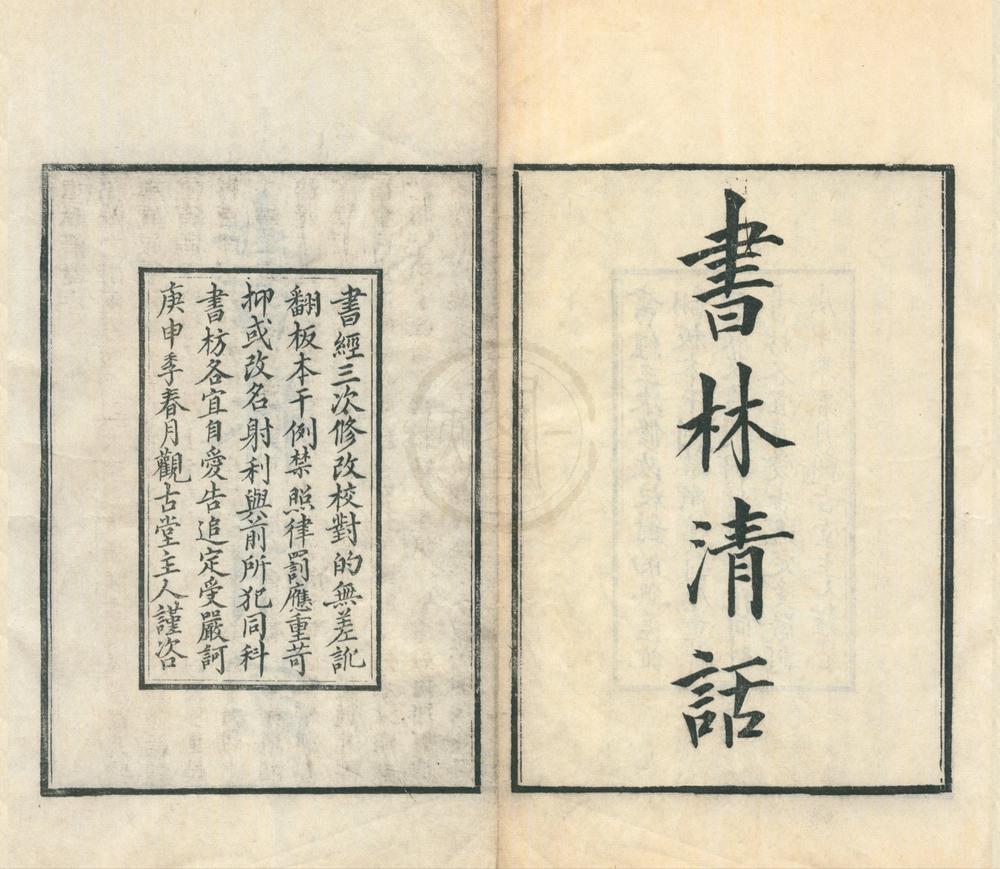 書林清話
書經三次修改校對的無差訛
翻板本干例禁照律罰應重苛
抑或改名射利與前所犯同科
書枋各宜自愛告追定受嚴訶
庚申季春月觀古堂主人謹咨